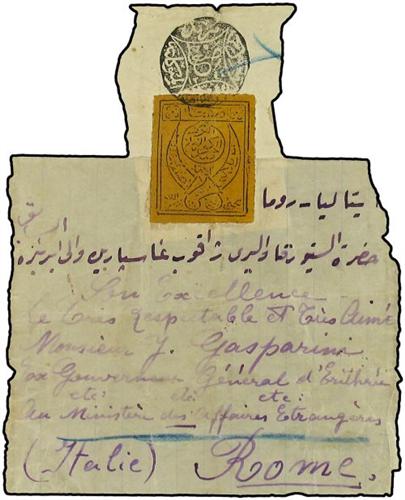 يتاليا - روما
حضرة السنيور قفاواليري ژاقوب غاسپاريني والى اريتره
Son Excellence
Le très Respectable et Très Aimé
Monsieur J. Gasparini
Ex Gouverneur Général d'Erithrée
etc: etc: etc:
Au Ministère des Affaires Etrangères
(Italie) Rome.